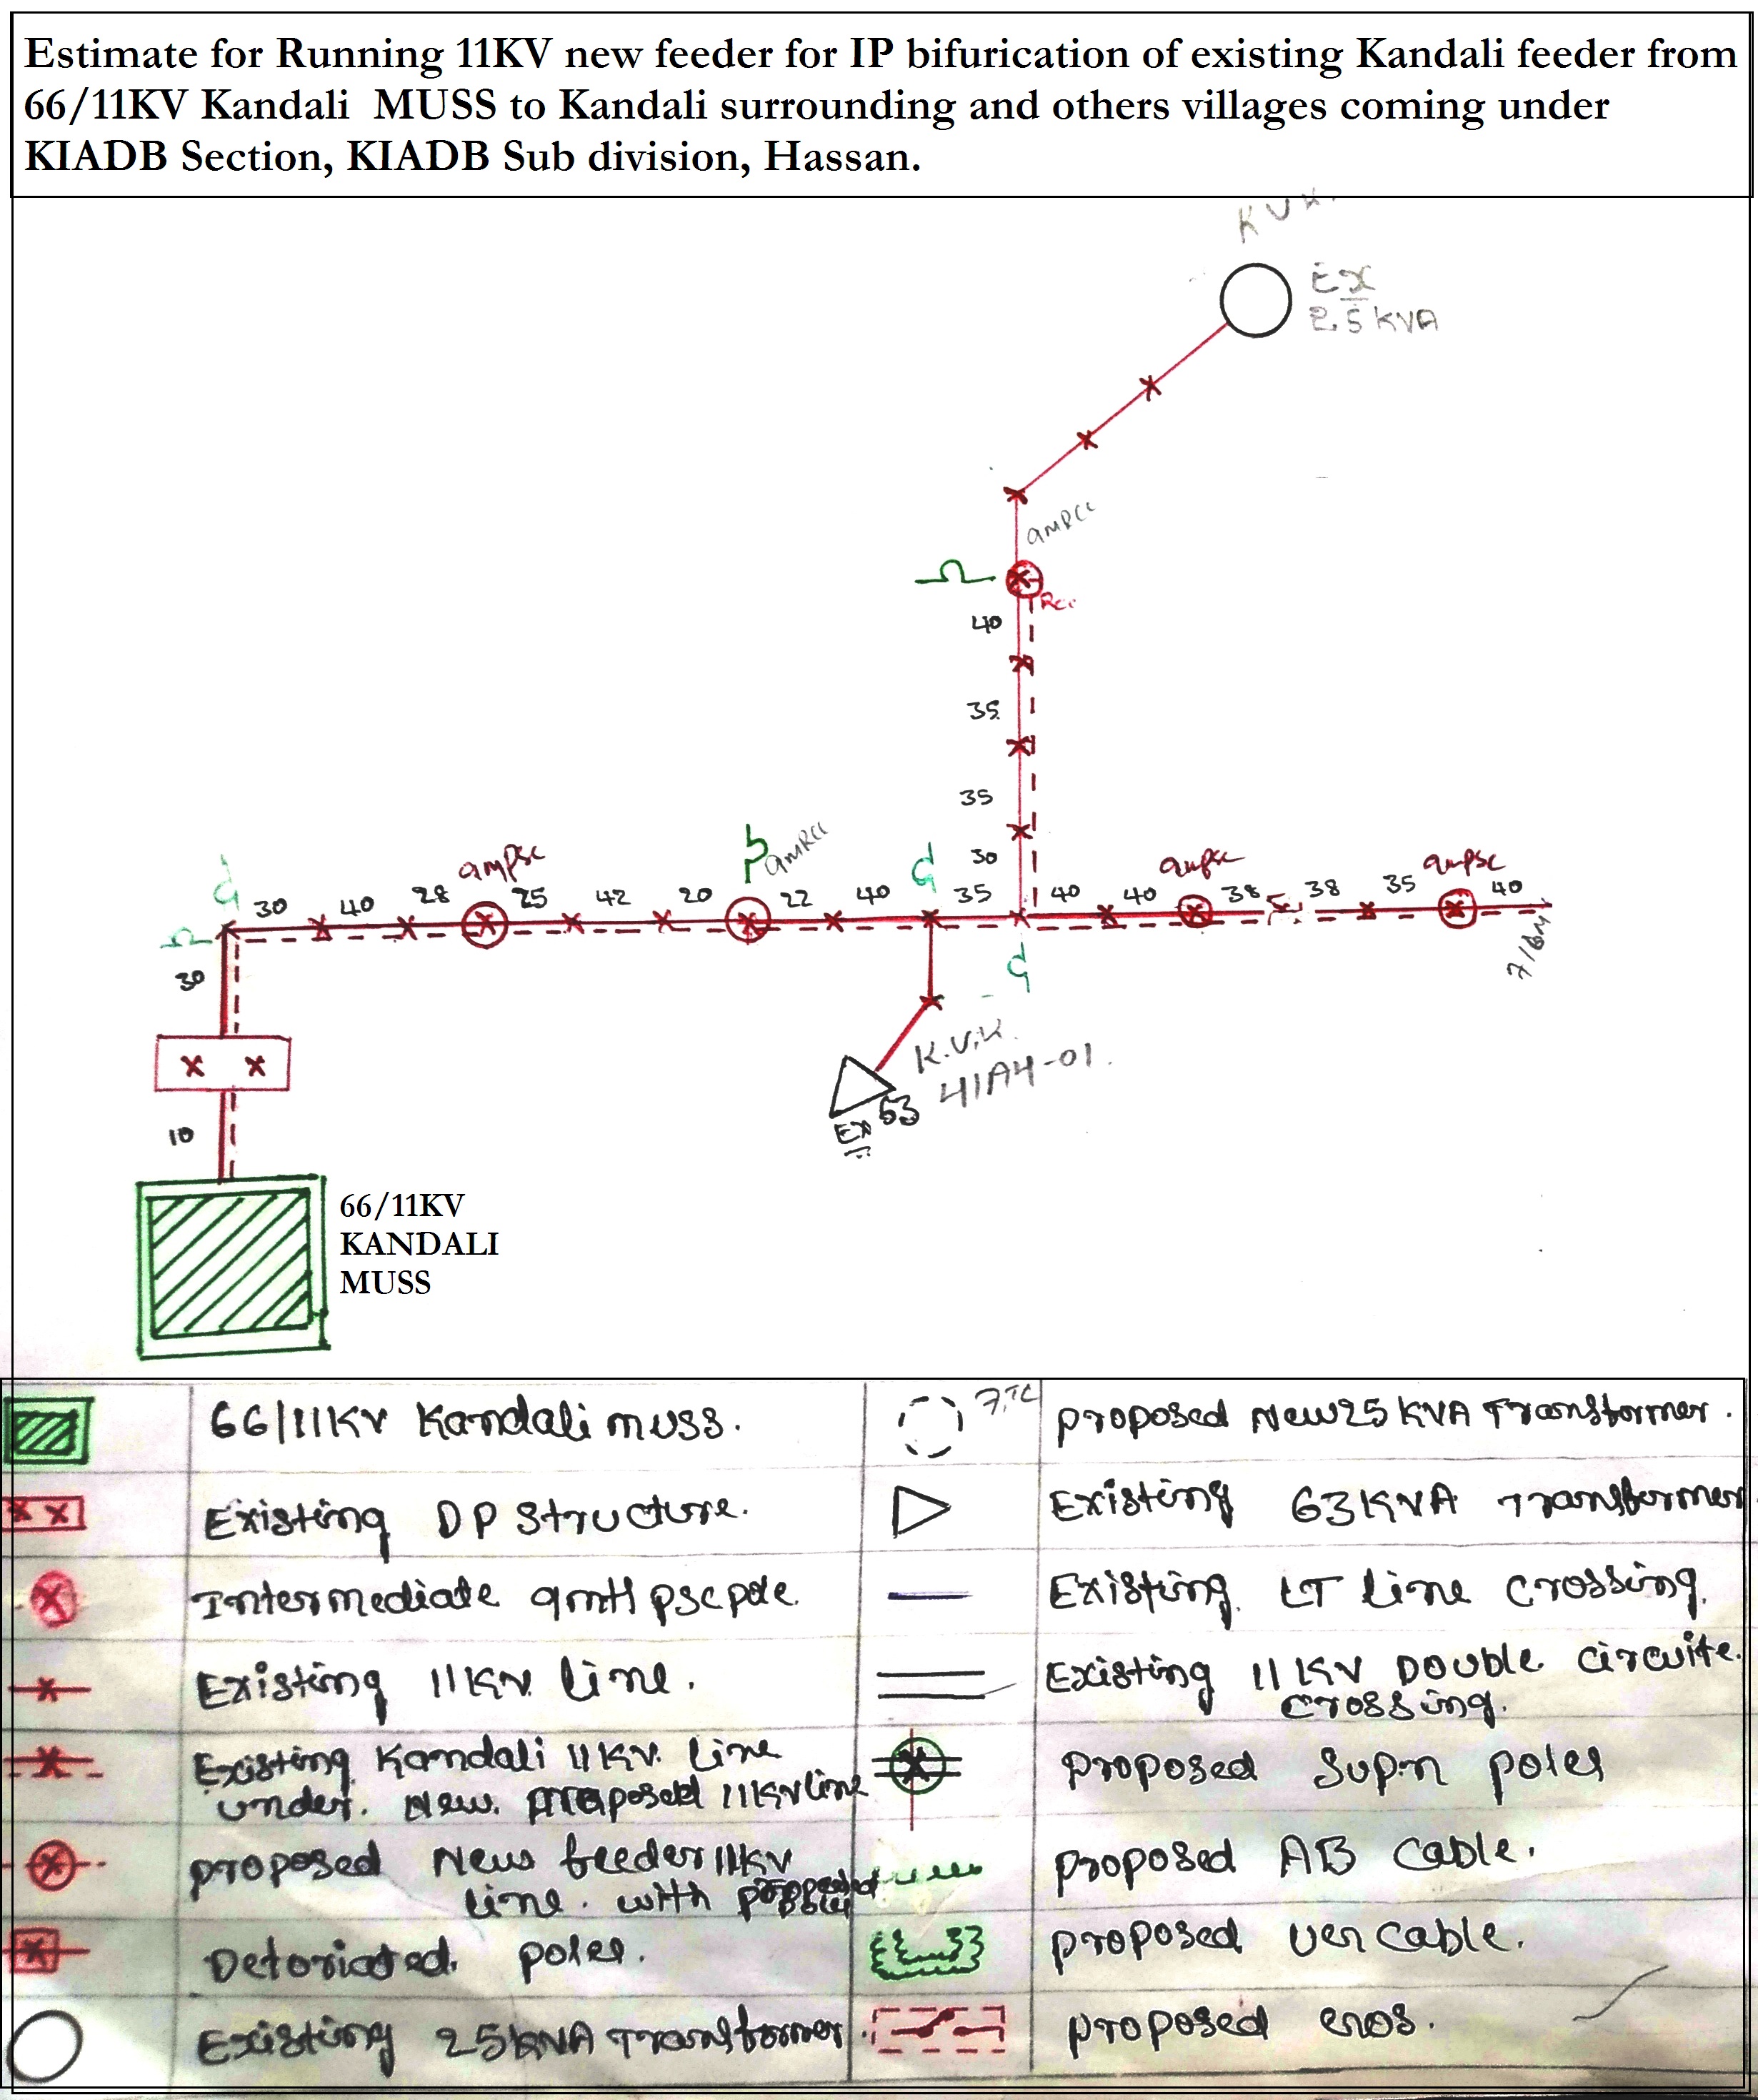 Estimate for Running 11KV new feeder for IP bifurication of existing Kandali feeder from
66/11KV Kandali MUSS to Kandali surrounding and others villages coming under
KIADB Section, KIADB Sub division, Hassan.
KVK.
Ex
25 KVA
9mRCC
Rcc
40
35
35
30
9mPSC
9mRCC
9mPSC
9mPSC
30 40 28 25 42 20 22 40 35 40 40 38 38 35 40
30
10
K.V.K.
41A4-01.
63
Ex
66/11KV
KANDALI
MUSS
66/11KV Kandali muss.
Proposed New 25 KVA Transformer.
Existing DP Structure.
Existing 63KVA Transformer
Intermediate 9mtl pscpole.
Existing LT line crossing.
Existing 11KV line.
Existing 11KV DOUBLE circuite.
crossing.
Existing Kandali 11KV line
under. New. proposed 11KV line
proposed Sup.n poles
proposed New feeder 11KV
line. with proposed
proposed AB cable.
Detoriated. poles.
proposed UG cable.
Existing 25KVA Transformer.
proposed